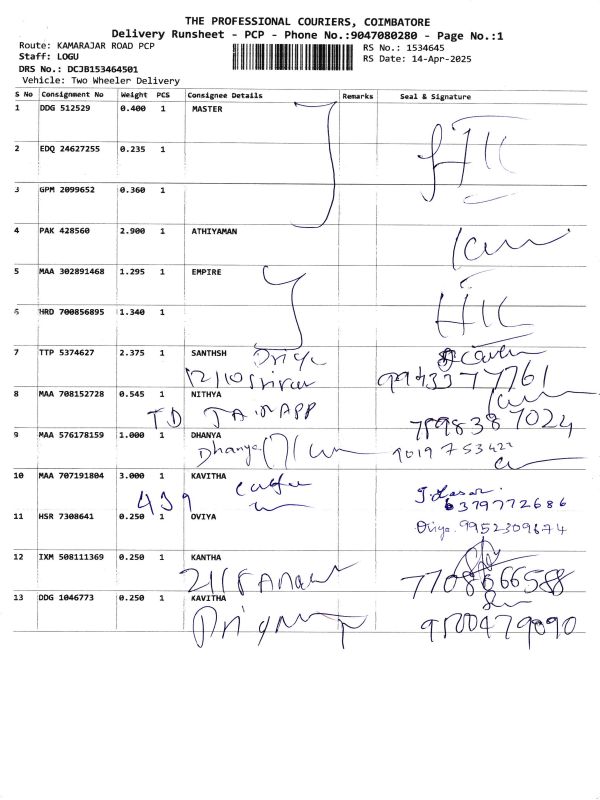 THE PROFESSIONAL COURIERS, COIMBATORE
Delivery Runsheet - PCP - Phone No.:9047080280 - Page No.:1
Route: KAMARAJAR ROAD PCP RS No.: 1534645
Staff: LOGU RS Date: 14-Apr-2025
DRS No.: DCJB153464501
Vehicle: Two Wheeler Delivery
S No Consignment No Weight PCS Consignee Details Remarks Seal & Signature
1 DDG 512529 0.400 1 MASTER
2 EDQ 24627255 0.235 1
3 GPM 2099652 0.360 1
4 PAK 428560 2.900 1 ATHIYAMAN
5 MAA 302891468 1.295 1 EMPIRE
6 HRD 700856895 1.340 1
7 TTP 5374627 2.375 1 SANTHSH
9943377761
8 MAA 708152728 0.545 1 NITHYA
7598387024
9 MAA 576178159 1.000 1 DHANYA
Dhanya 9019753422
10 MAA 707191804 3.000 1 KAVITHA
439 6379772686
11 HSR 7308641 0.250 1 OVIYA
Oviya 9952309674
12 IXM 508111369 0.250 1 KANTHA
7708666588
13 DDG 1046773 0.250 1 KAVITHA
9500479090